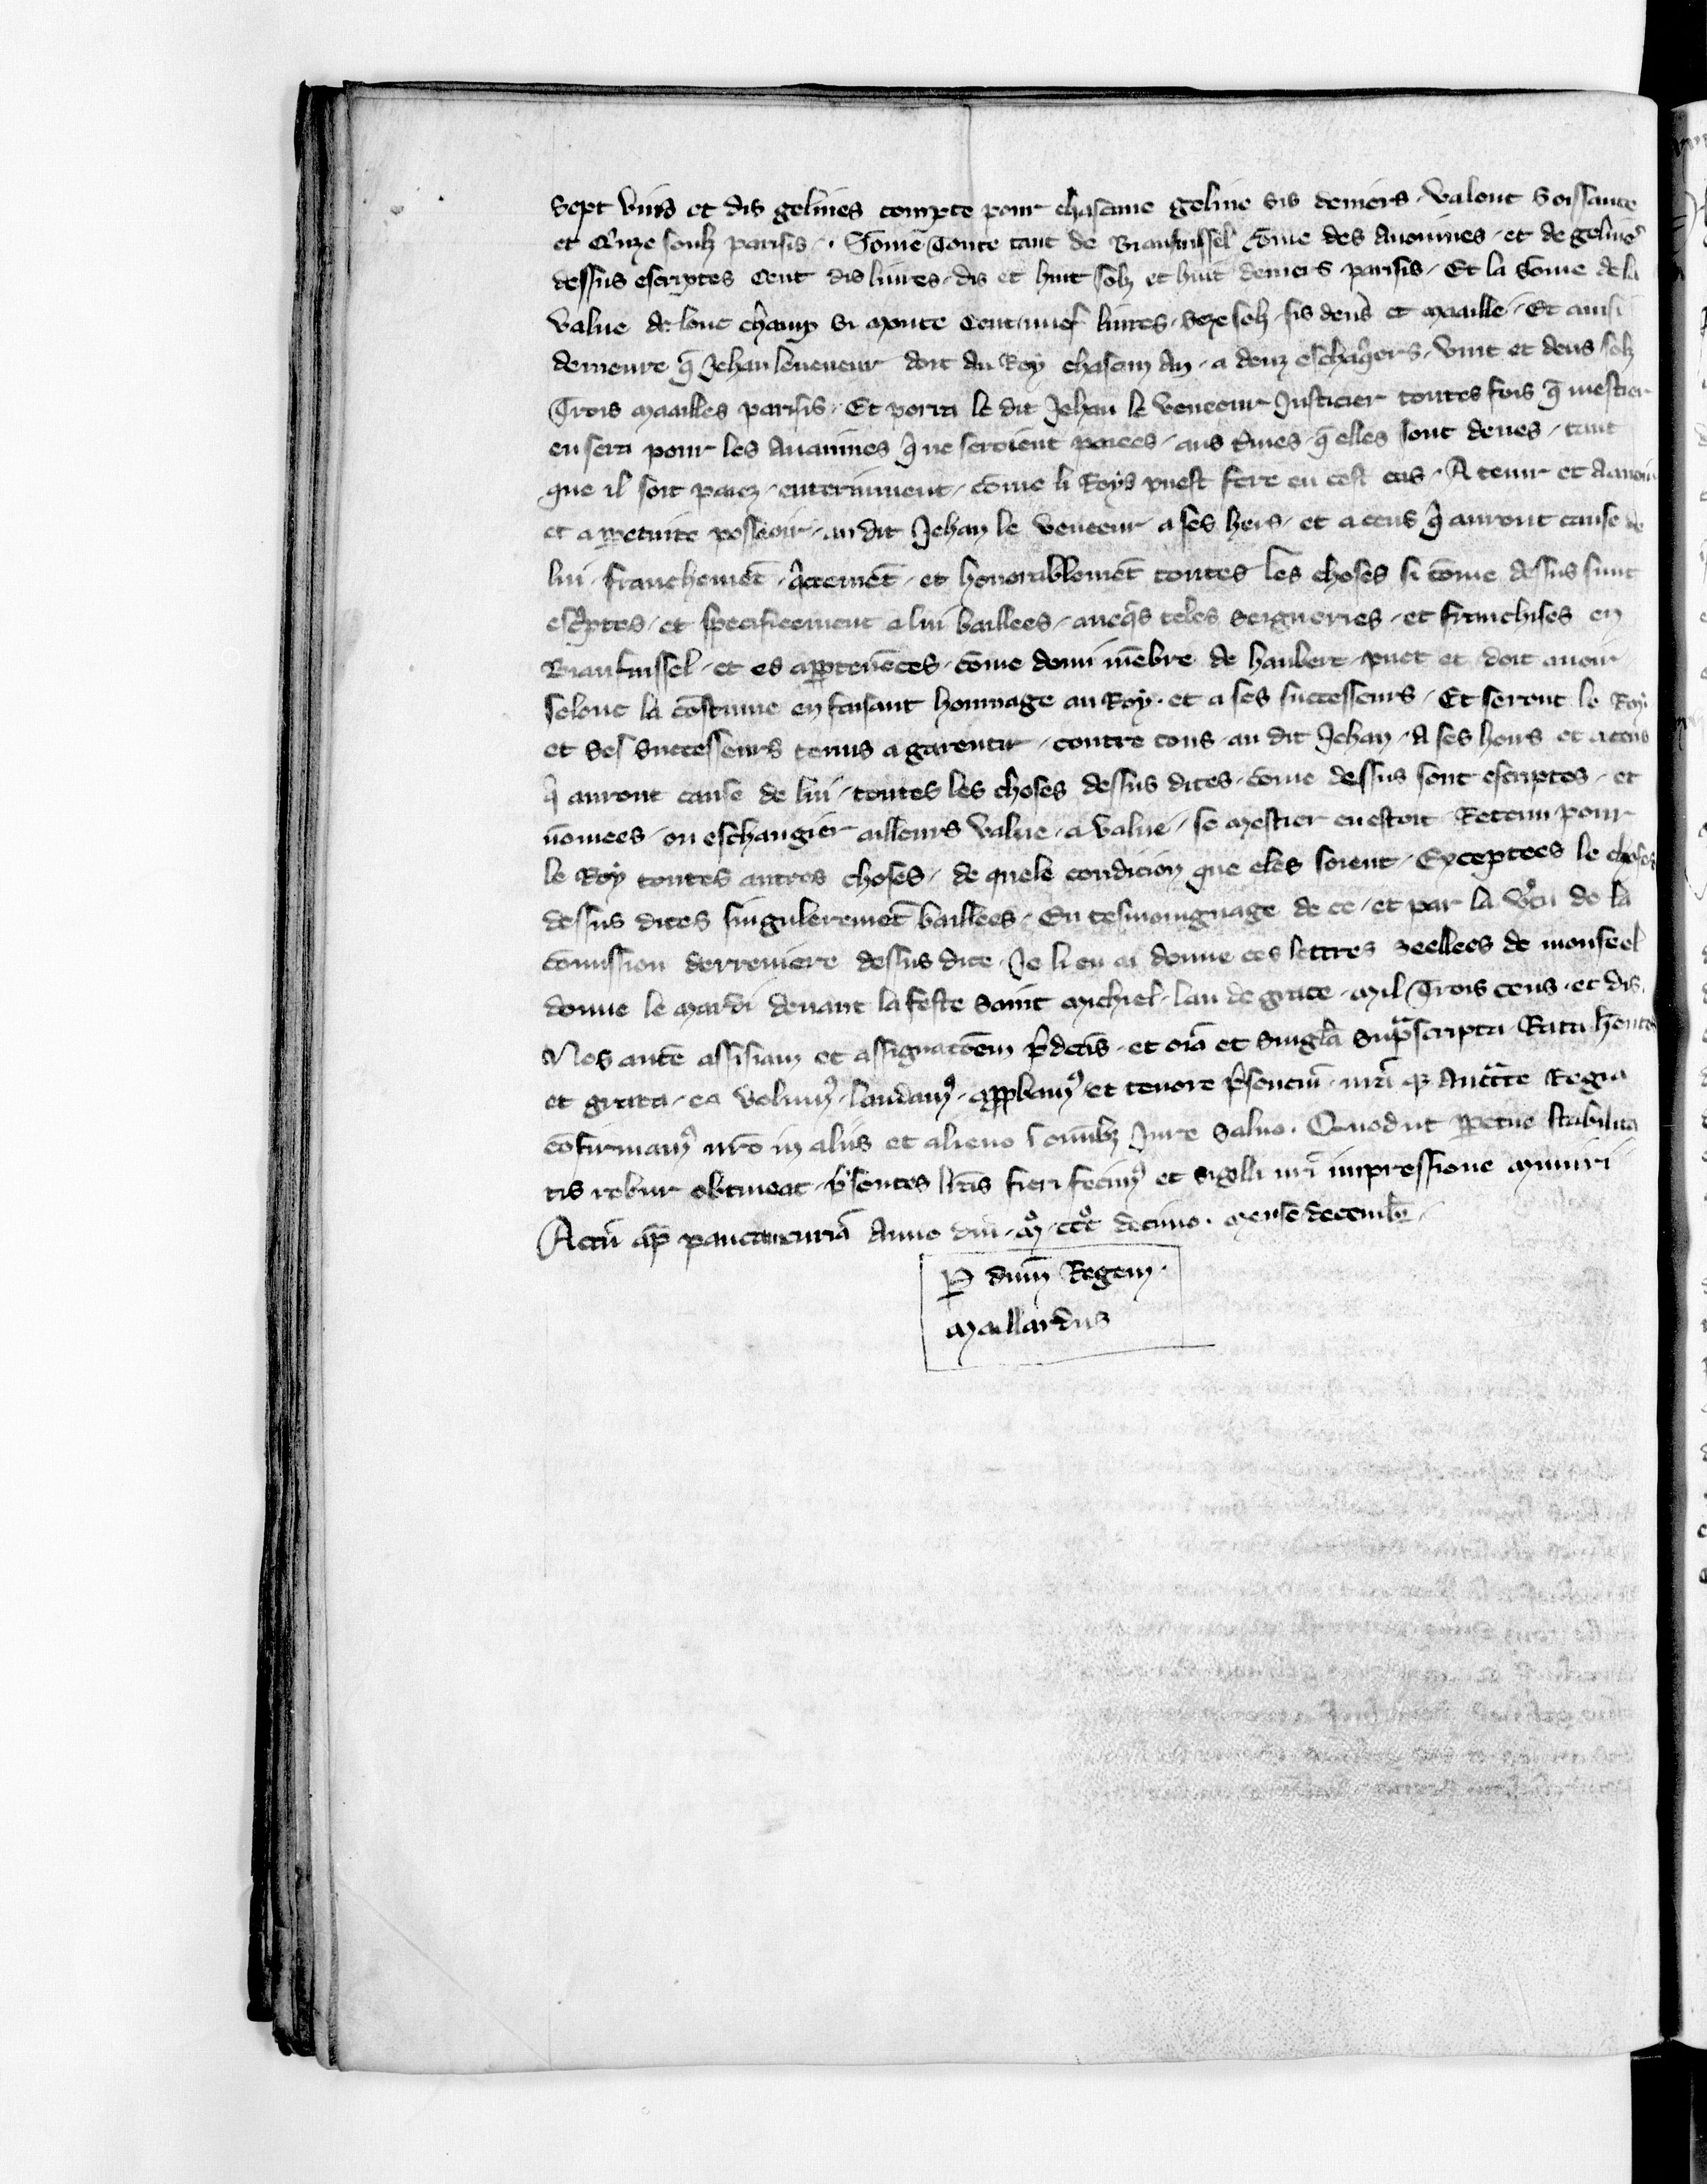 Sept vins et dis gelines compte pour chascune geline sis deniers, valent soissante
et q̓nze soulz parisis. Som̄e toute tant de Biaufuissel com̄e des avoinnes, et de gelines
dessus escriptes Cent dis livres, dis et huit solz et huit deniers parisis, Et la Som̄e de la
value de lonc champ si monte Cent nuef livres, seze solz, sis deñs et maaille, Et ainsi
demeure q̄ Jehan le veneeur doit au Roy chascun An, a deuz eschaq̓ers, vint et deus solz
Trois maailles parisis, Et porra le dit Jehan le veneeur Justicier toutes fois q̄ mestier
en sera pour les Avainnes q̓ ne seroient paiees, aus t̓mes q̄ elles sont deues, tant
que il soit paiez, enterinment, com̄e li Roys puest fere en cest cas, A tenir et a avoir
et a ꝑpetuite posseoir, au dit Jehan le veneeur a ses hers, et a ceus q̓ auront cause de
lui, franchemēt, q̓ttemēt, et honorablemēt toutes les choses si com̄e dessus sunt
esc̓ptes, et specifieement a lui baillees, aueq̄s teles seigneries, et franchises en
Biaufuissel, et es aꝑtenēces, com̄e demi mēbre de haubert, puet et doit avoir
selonc la coustume en faisant hommage au Roy, et a ses successeurs, Et seront le Roy
et ses successeurs tenus a garentir, contre tous, au dit Jehan, A ses hoirs et a ceus
q̓ auront cause de lui, toutes les choses dessus dites, com̄e dessus sont escriptes, et
nom̄ees, ou eschangier ailleurs value, a value, se mestier en estoit Retenu pour
le Roy toutes autres choses, de quele condicion que eles soient, Exceptees le choses
dessus dites singulieremēt baillees, En tesmoingnage de ce, et par la v̓tu de la
com̄ission derreniere dessus dite, Je li en ai donne ces lettres seellees de mon seel
donne le mardi devant la feste Saint Michiel, lan de grace, mil Trois cens, et dis,
Nos autē assisiam et assignacōem p̓dc̄as, et oīa et singl̄a sup̄scripta Rata hēntes
et grata, ea volum⁹, laudam⁹, aꝓbam⁹ et tenore p̓sentiū, nr̄aq; auctt̄e Regia
cōfirmam⁹ nr̄o in aliis et alieno ī omībz Jure salvo. Quod ut ꝑpetue stabilita
tis robur obtineat, p̓sentes lr̄as fieri fecim⁹ et sigilli nr̄i impressione muniri
Actū ap̄ pautamcuriā Anno dn̄i. m̊. ccc̊ decimo. mense decembr̄.
P dnm̄ Regem.
Maillardus